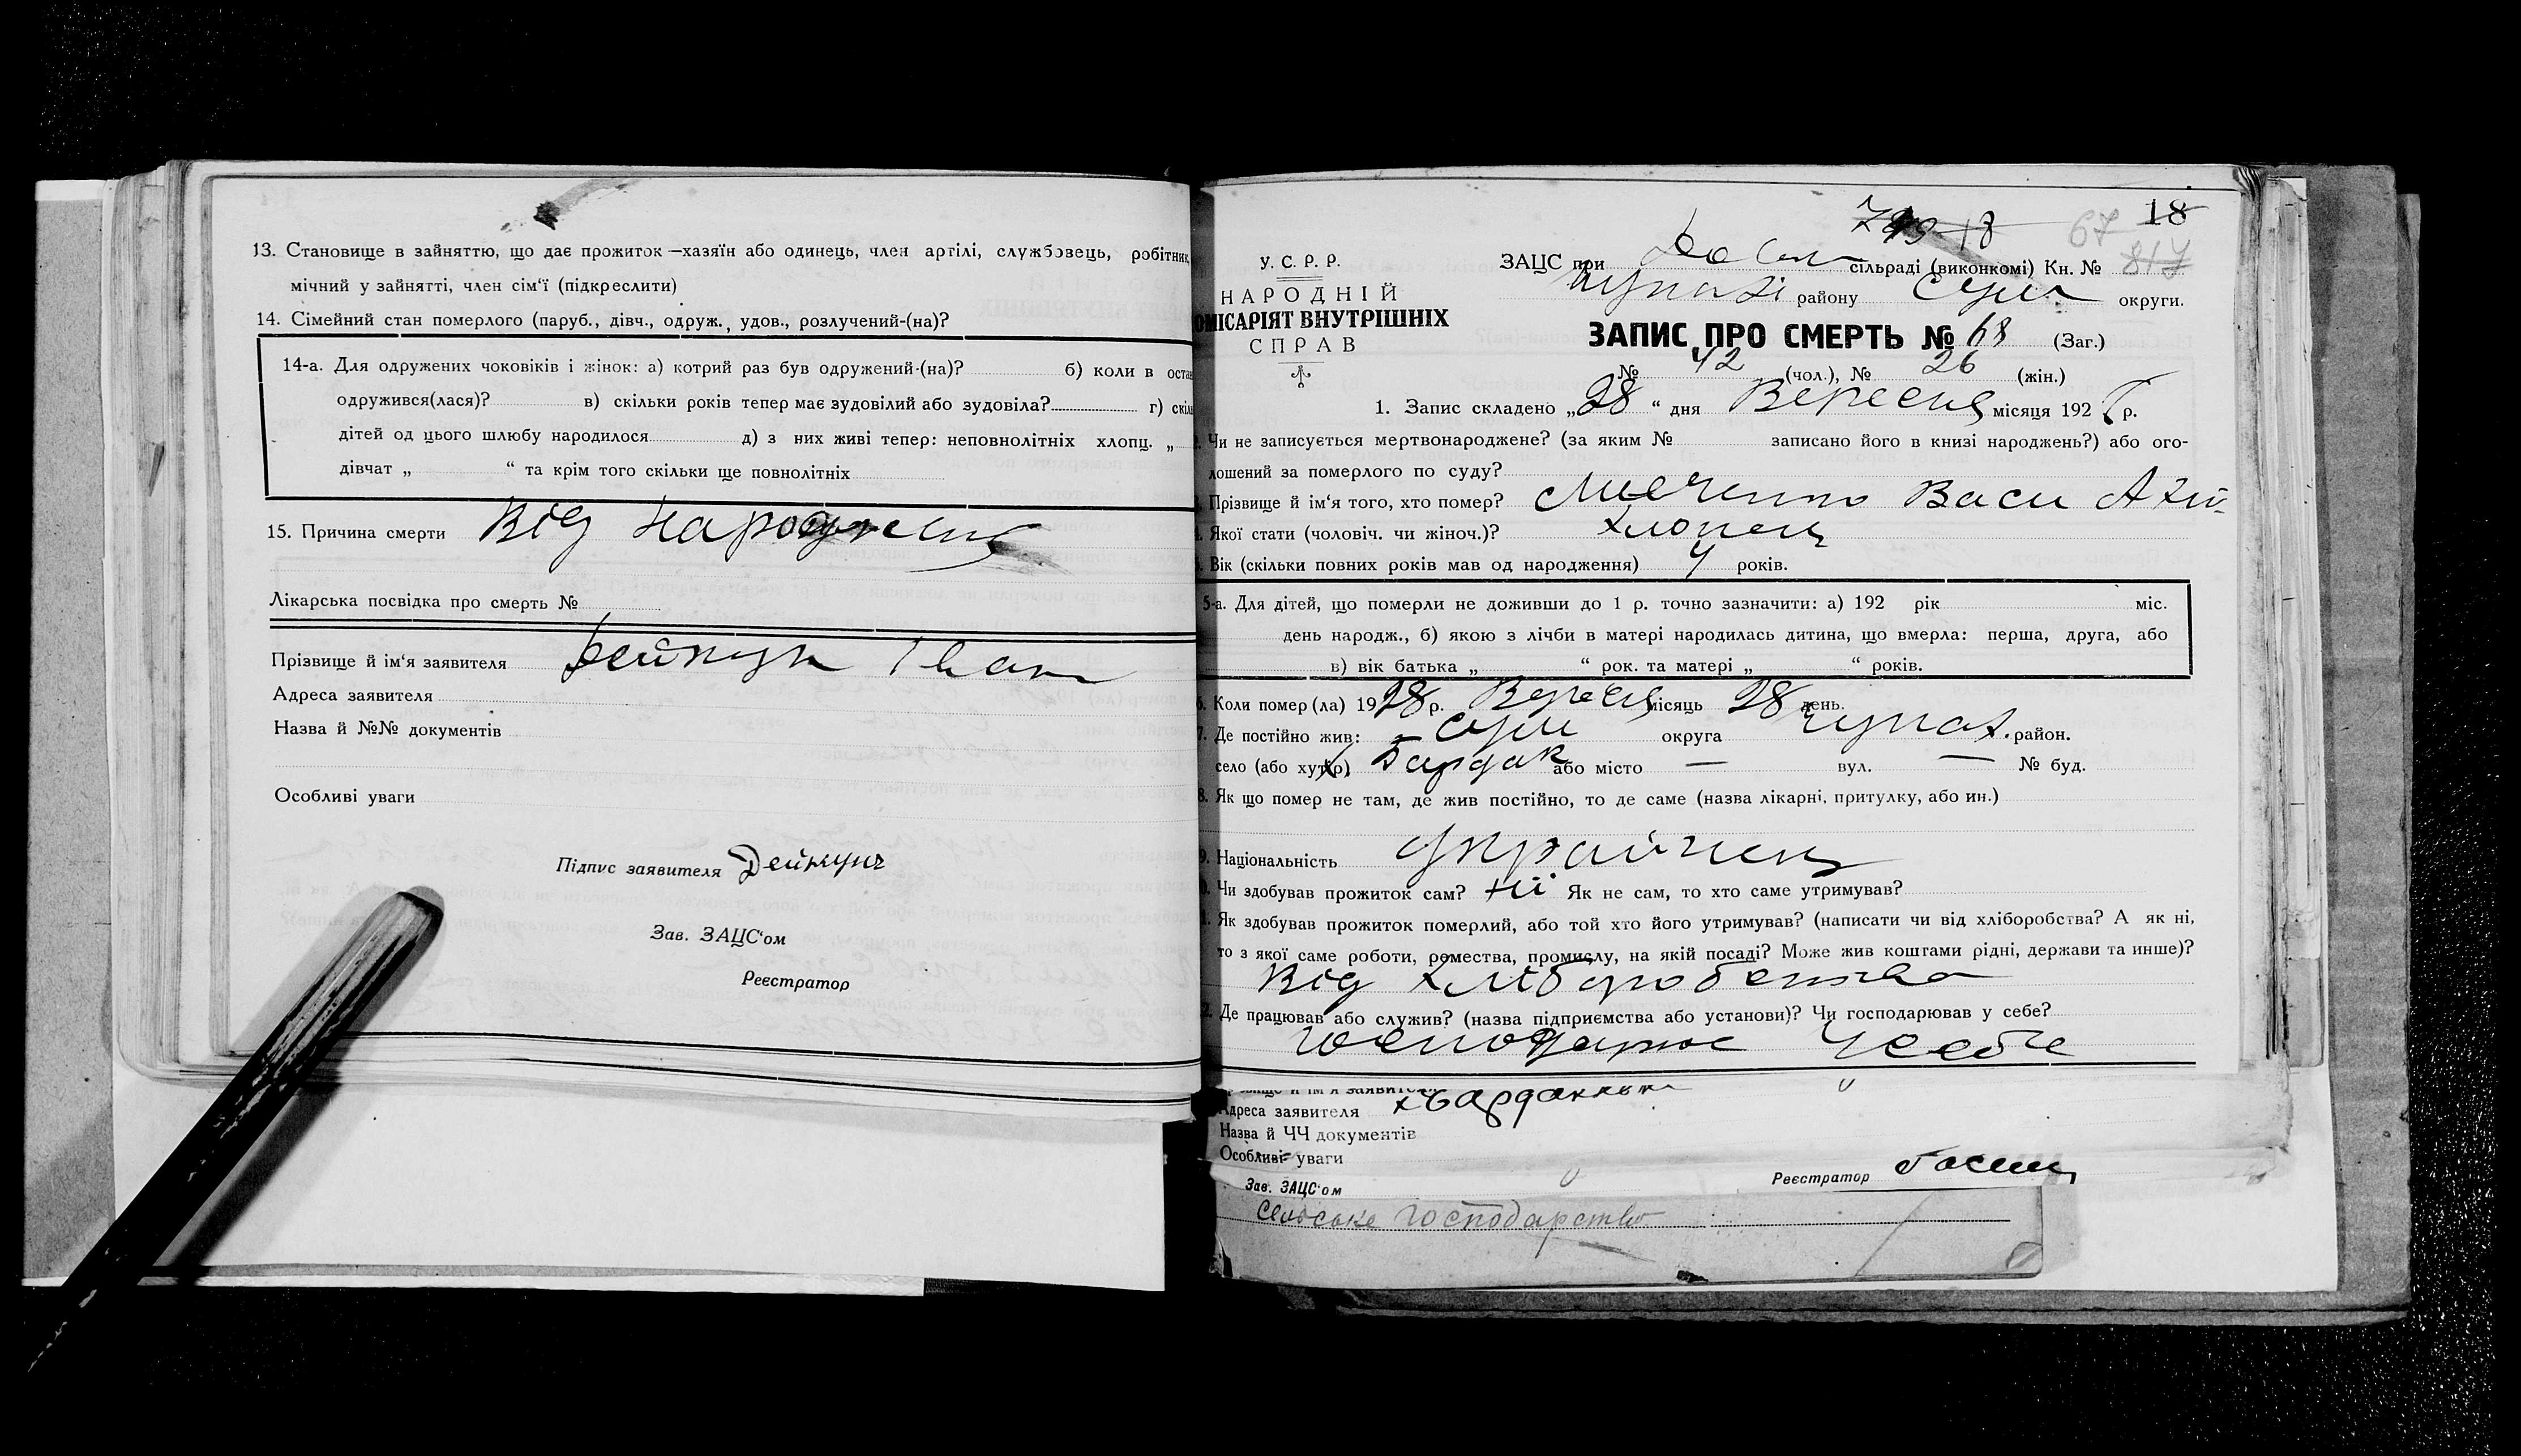 13. Становище в зайняттю, що дає прожиток—хазяїн або одинець, член артілі, службовець, робітник,
мічний у зайнятті, член сім'ї (підкреслити)
14. Сімейний стан померлого (паруб., дівч., одруж., удов., розлучений-(на)?
14-а. Для одружених чоковіків і жінок: а) котрий раз був одружений-(на)? б) коли в остан
одружився(лася)? в) скільки років тепер має зудовілий або зудовіла? г) скіль
дітей од цього шлюбу народилося д) з них живі тепер: неповнолітніх хлопц. „
дівчат „ “ та крім того скільки ще повнолітніх
15. Причина смерти Від народження
Лікарська посвідка про смерть №
Прізвище й ім'я заявителя Іван
Адреса заявителя
Назва й №№ документів
Особливі уваги
Підпис заявителя
Зав. ЗАЦС'ом
Реєстратор
18
67
817
18
У. С. Р. Р.
НАРОДНІЙ
ОМІСАРІЯТ ВНУТРІШНІХ
СПРАВ
ЗАЦС при сільраді (виконкомі) Кн. №
району Сум округи.
ЗАПИС ПРО СМЕРТЬ № 68 (Заг.)
№ 42 (чол.), № 26 (жін.)
1. Запис складено „28“ дня Вересня місяця 1928 р.
Чи не записується мертвонароджене? (за яким № записано його в книзі народжень?) або ого-
лошений за померлого по суду?
Прізвище й ім'я того, хто помер? Васи
Якої стати (чоловіч. чи жіноч.)? хлопец
Вік (скільки повних років мав од народження) 4 років.
5-а. Для дітей, що померли не доживши до 1 р. точно зазначити: а) 192 рік міс.
день народж., б) якою з лічби в матері народилась дитина, що вмерла: перша, друга, або
в) вік батька „ “ рок. та матері „ “ років.
Коли помер(ла) 1928 р. Вересня місяць 28 день.
7. Де постійно жив: Сум округа район.
село (або хутір) Бардак або місто — вул. — № буд.
8. Як що помер не там, де жив постійно, то де саме (назва лікарні, притулку, або ин.)
9. Національність Українец
Чи здобував прожиток сам? ні Як не сам, то хто саме утримував?
Як здобував прожиток померлий, або той хто його утримував? (написати чи від хліборобства? А як ні,
то з якої саме роботи, ремества, промислу, на якій посаді? Може жив коштами рідні, держави та инше)?
Від хліборобства
Де працював або служив? (назва підприємства або установи)? Чи господарював у себе?
Господарює У себе
Адреса заявителя
Назва й ЧЧ документів
Особливі уваги
Зав. ЗАЦС'ом Реєстратор
Сельське господарство